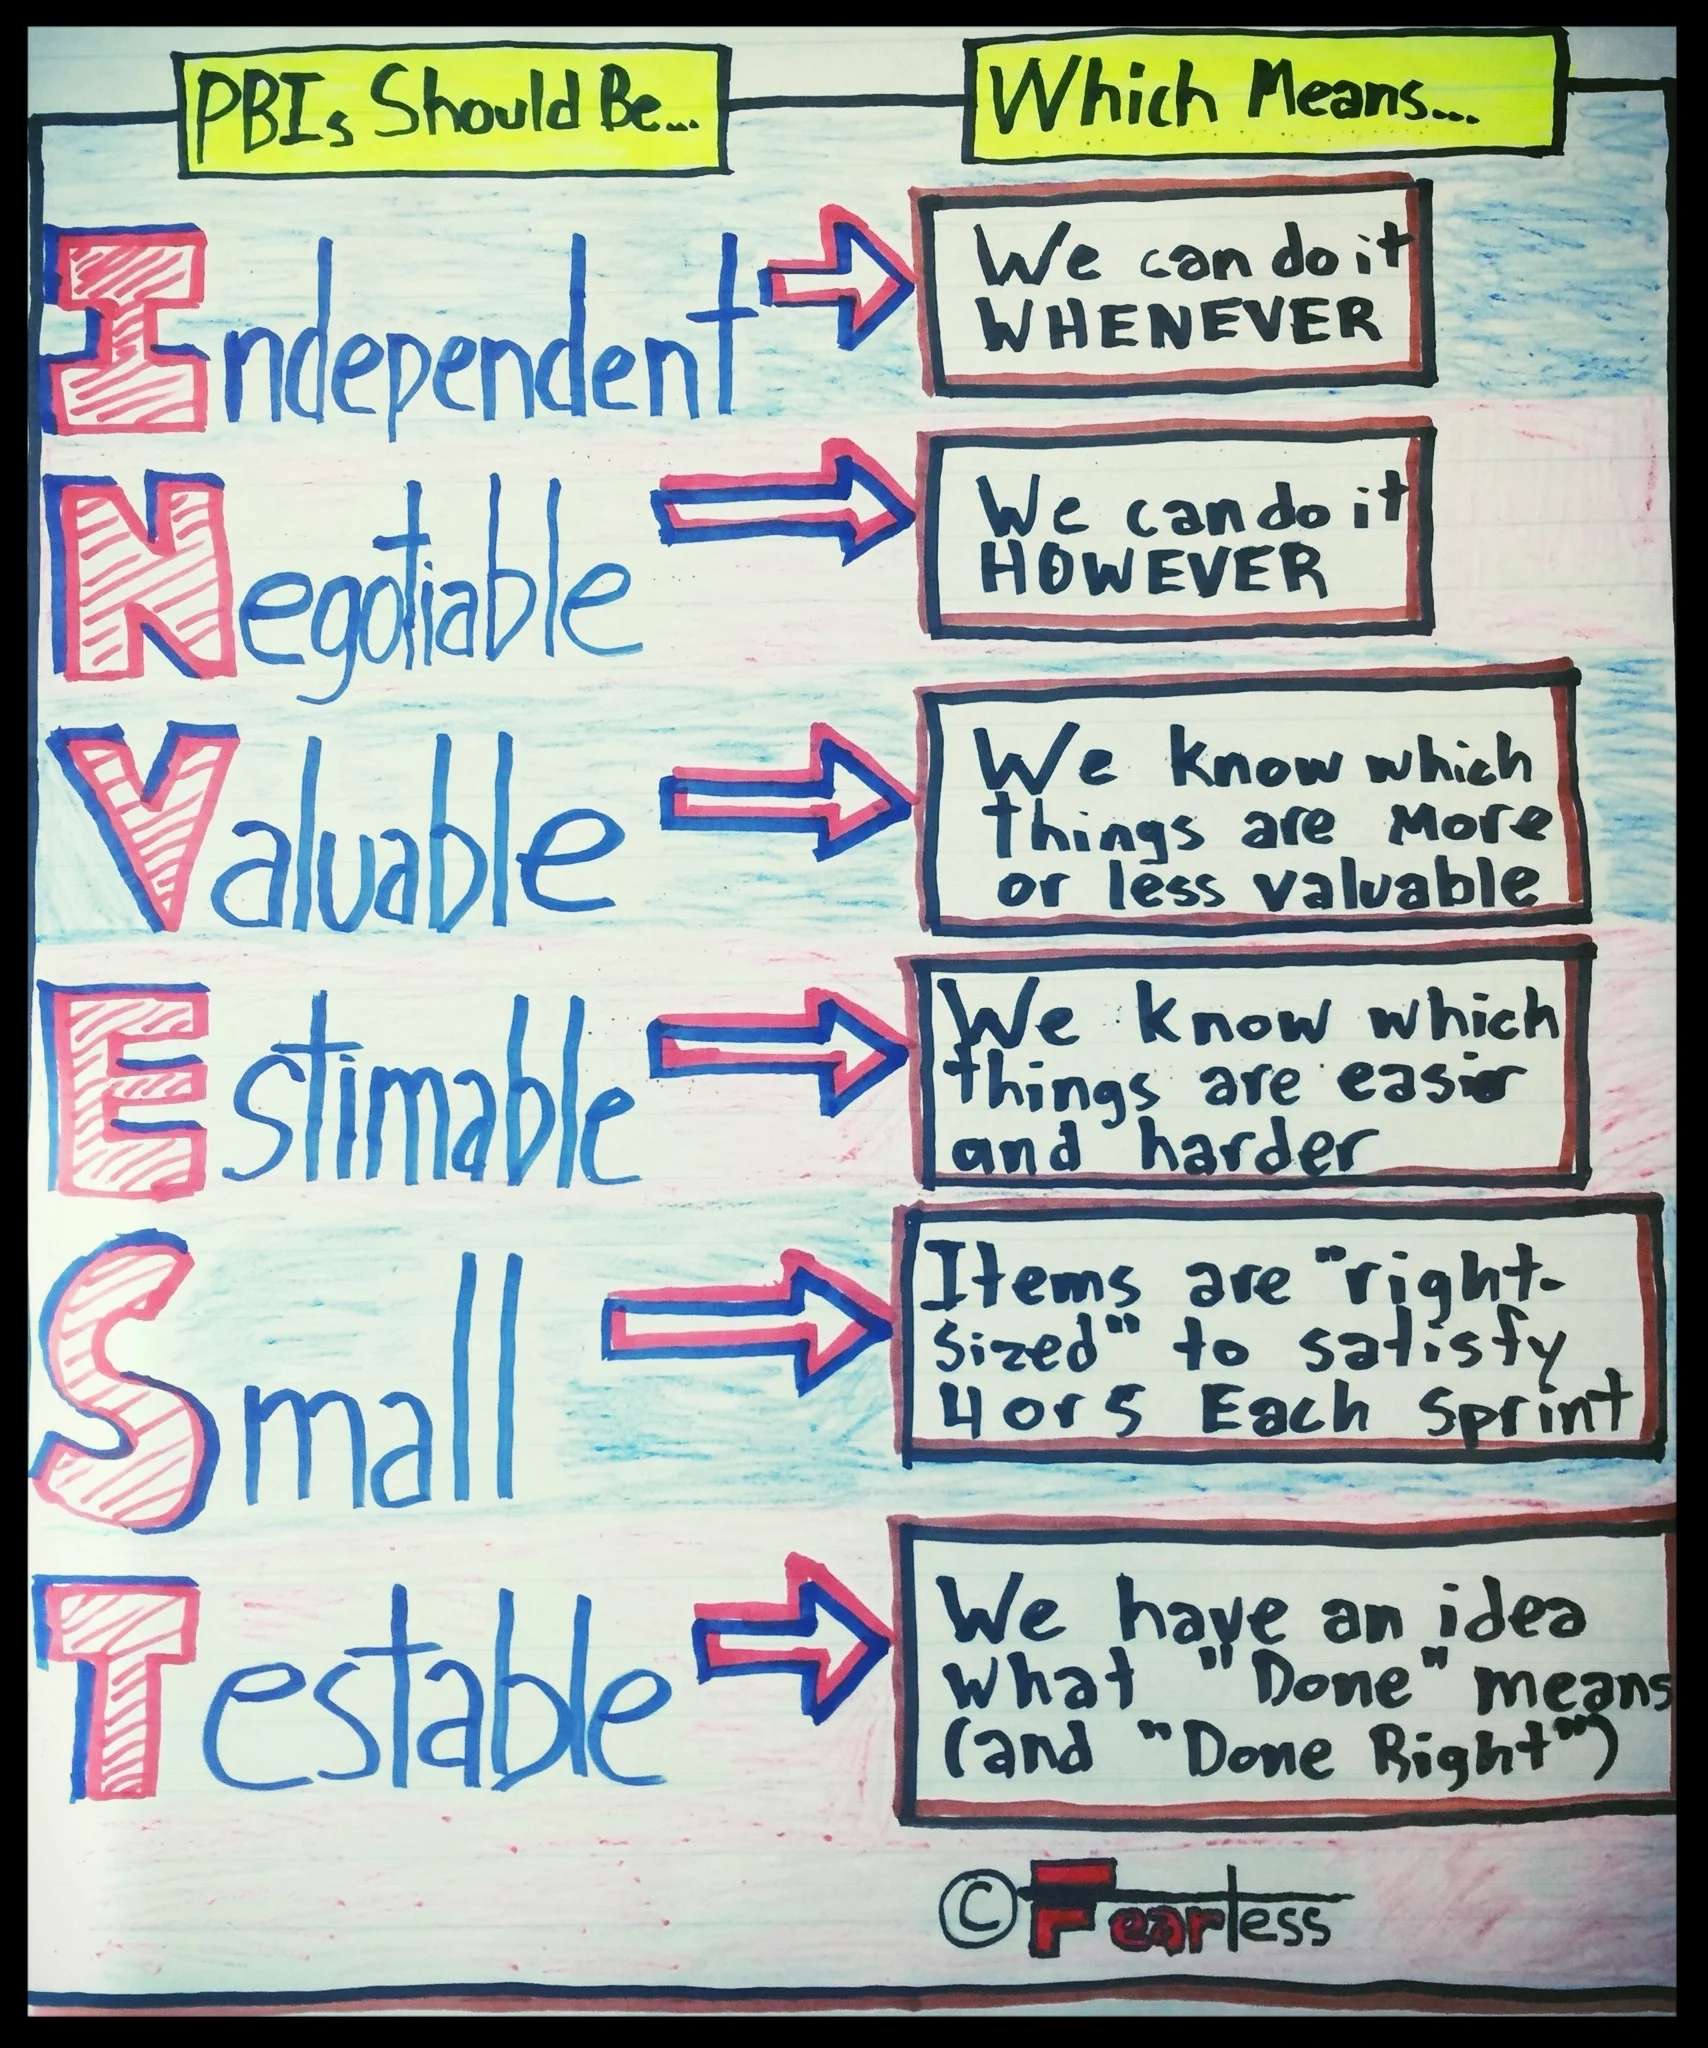 PBIs Should Be...
Which Means...
Independent
We can do it
WHENEVER
Negotiable
We can do it
HOWEVER
Valuable
We know which
things are More
or less valuable
Estimable
We know which
things are easier
and harder
Small
Items are "right-
sized" to satisfy
4 or 5 Each Sprint
Testable
We have an idea
what "Done" means
(and "Done Right")
© Fearless